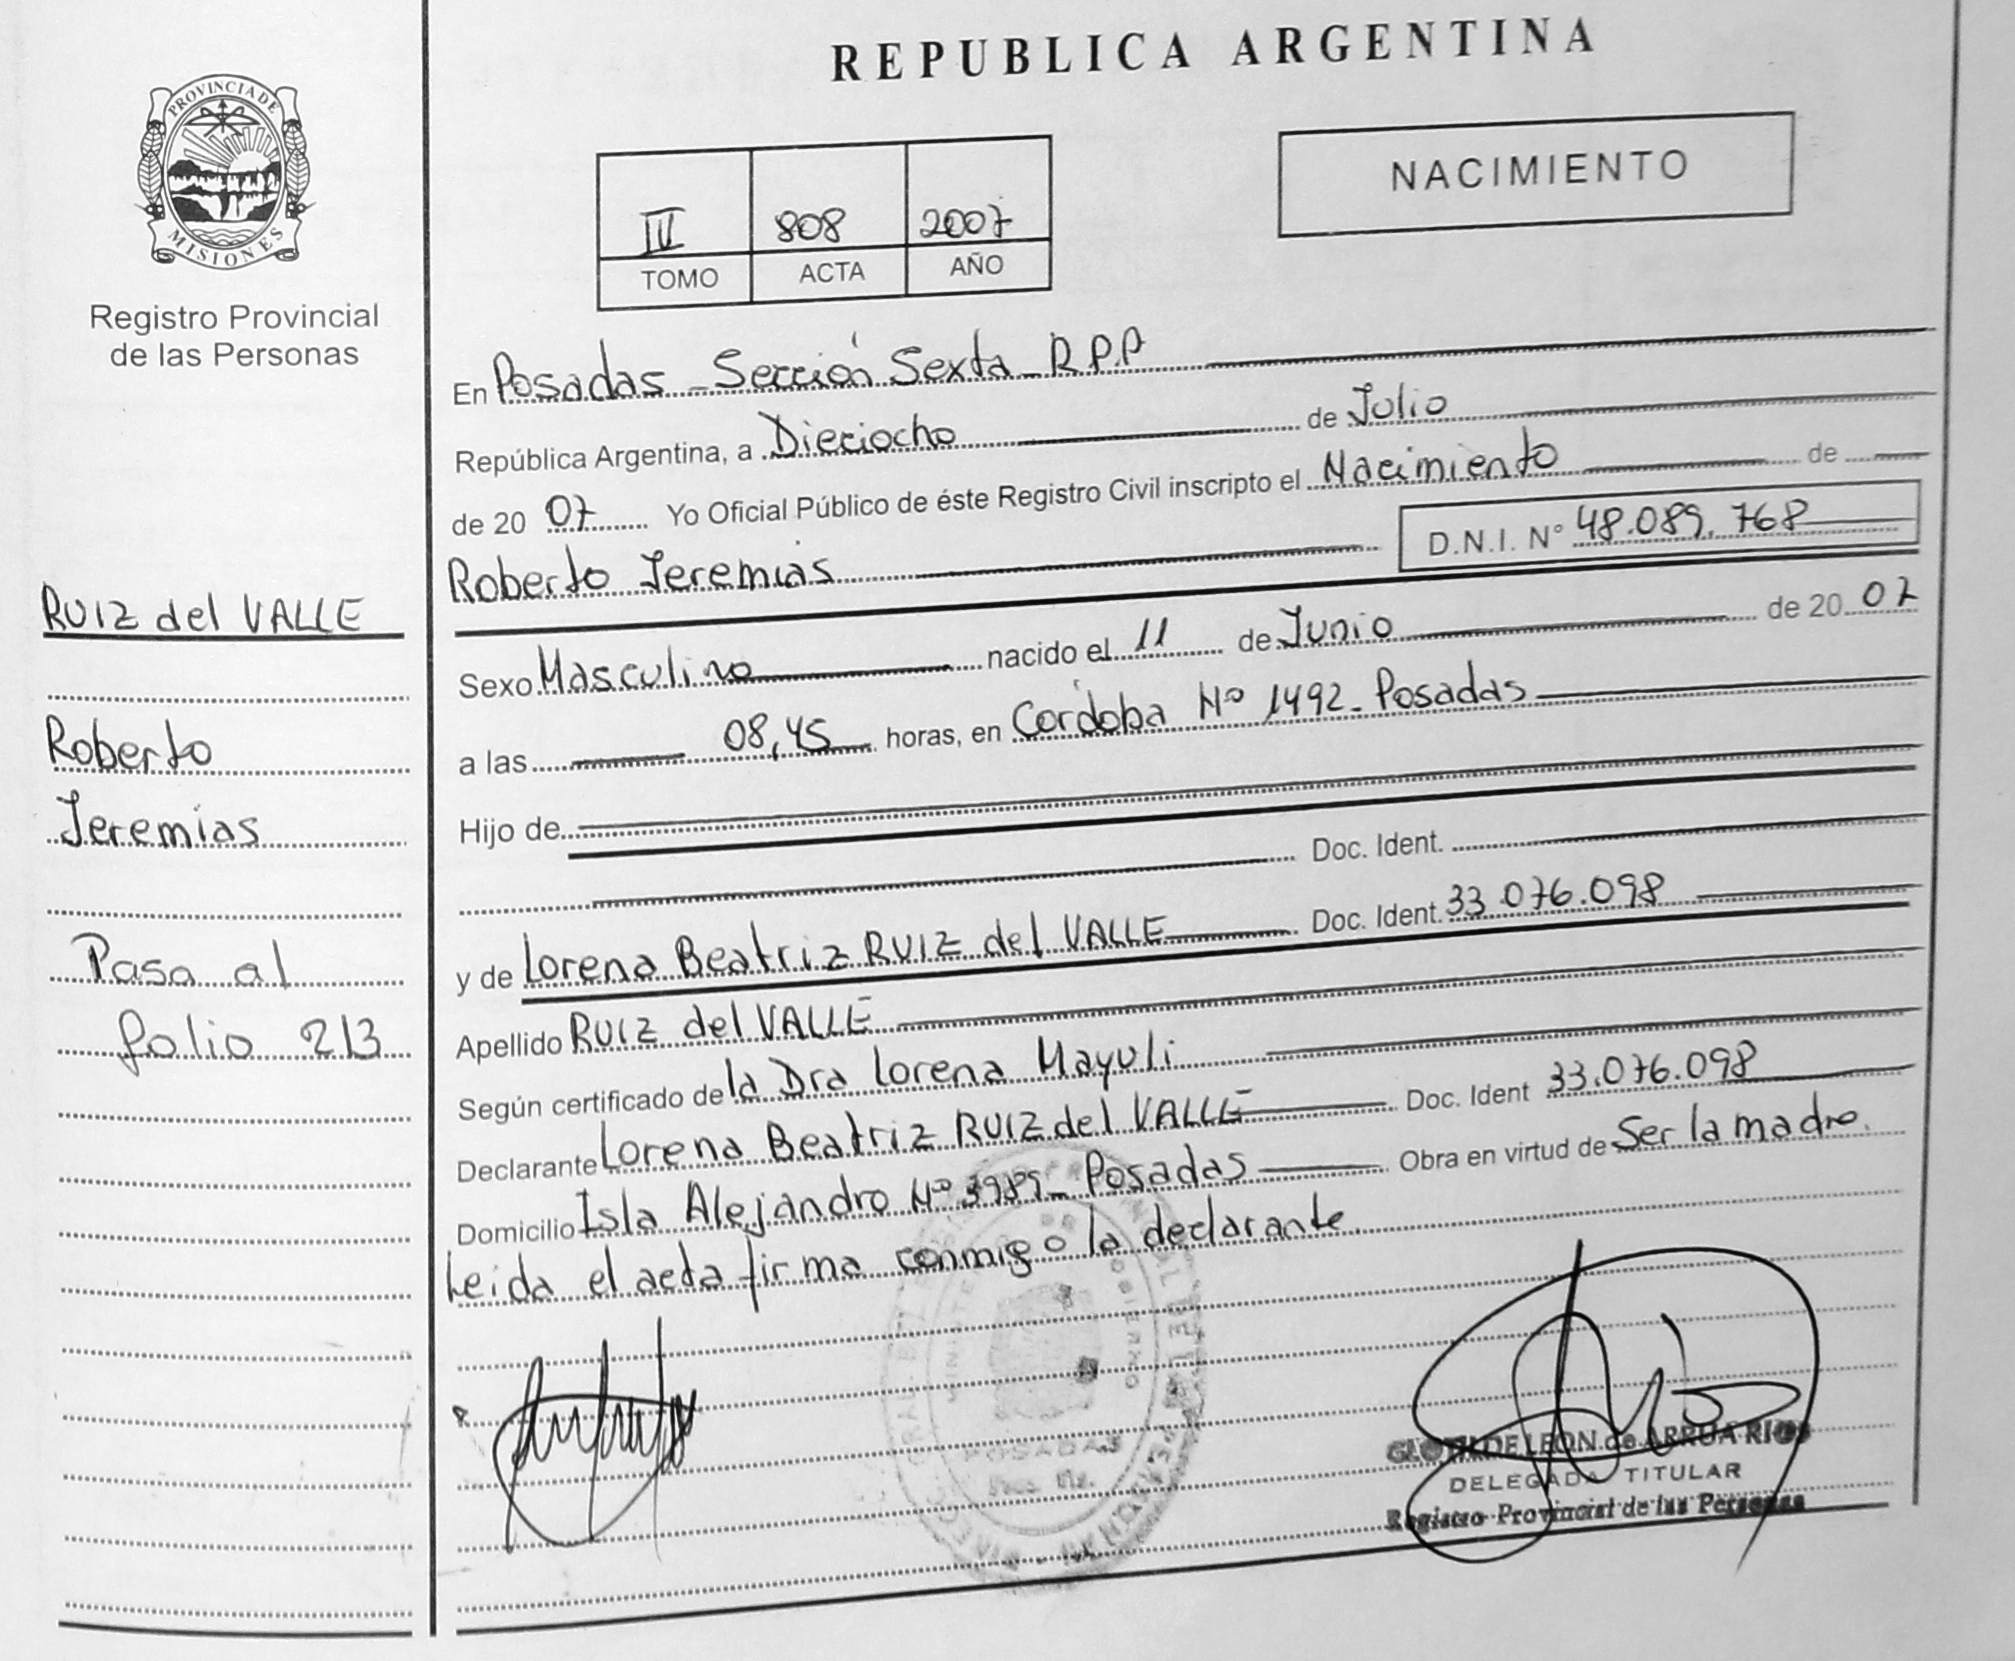 REPUBLICA ARGENTINA
PROVINCIA DE
MISIONES
Registro Provincial
de las Personas
NACIMIENTO
IV 808 2007
TOMO ACTA AÑO
En Posadas - Sección Sexta - R.P.P
República Argentina, a Dieciocho de Julio
de 20 07 Yo Oficial Público de éste Registro Civil inscripto el Nacimiento de
Roberto Jeremias D.N.I. N° 48.089.768
Sexo Masculino nacido el 11 de Junio de 20 07
a las 08,45 horas, en Córdoba Nº 1492 - Posadas
Hijo de
Doc. Ident.
y de Lorena Beatriz RUIZ del VALLE Doc. Ident. 33.076.098
Apellido RUIZ del VALLE
Según certificado de la Dra Lorena Mayuli
Declarante Lorena Beatriz RUIZ del VALLE Doc. Ident 33.076.098
Domicilio Isla Alejandro Nº 3989 - Posadas Obra en virtud de Ser la madre.
Leida el acta firma conmigo la declarante.
RUIZ del VALLE
Roberto
Jeremias
Pasa al
folio 213
POSADAS
DE LEON de ARRUA RIOS
DELEGADA TITULAR
Registro Provincial de las Personas